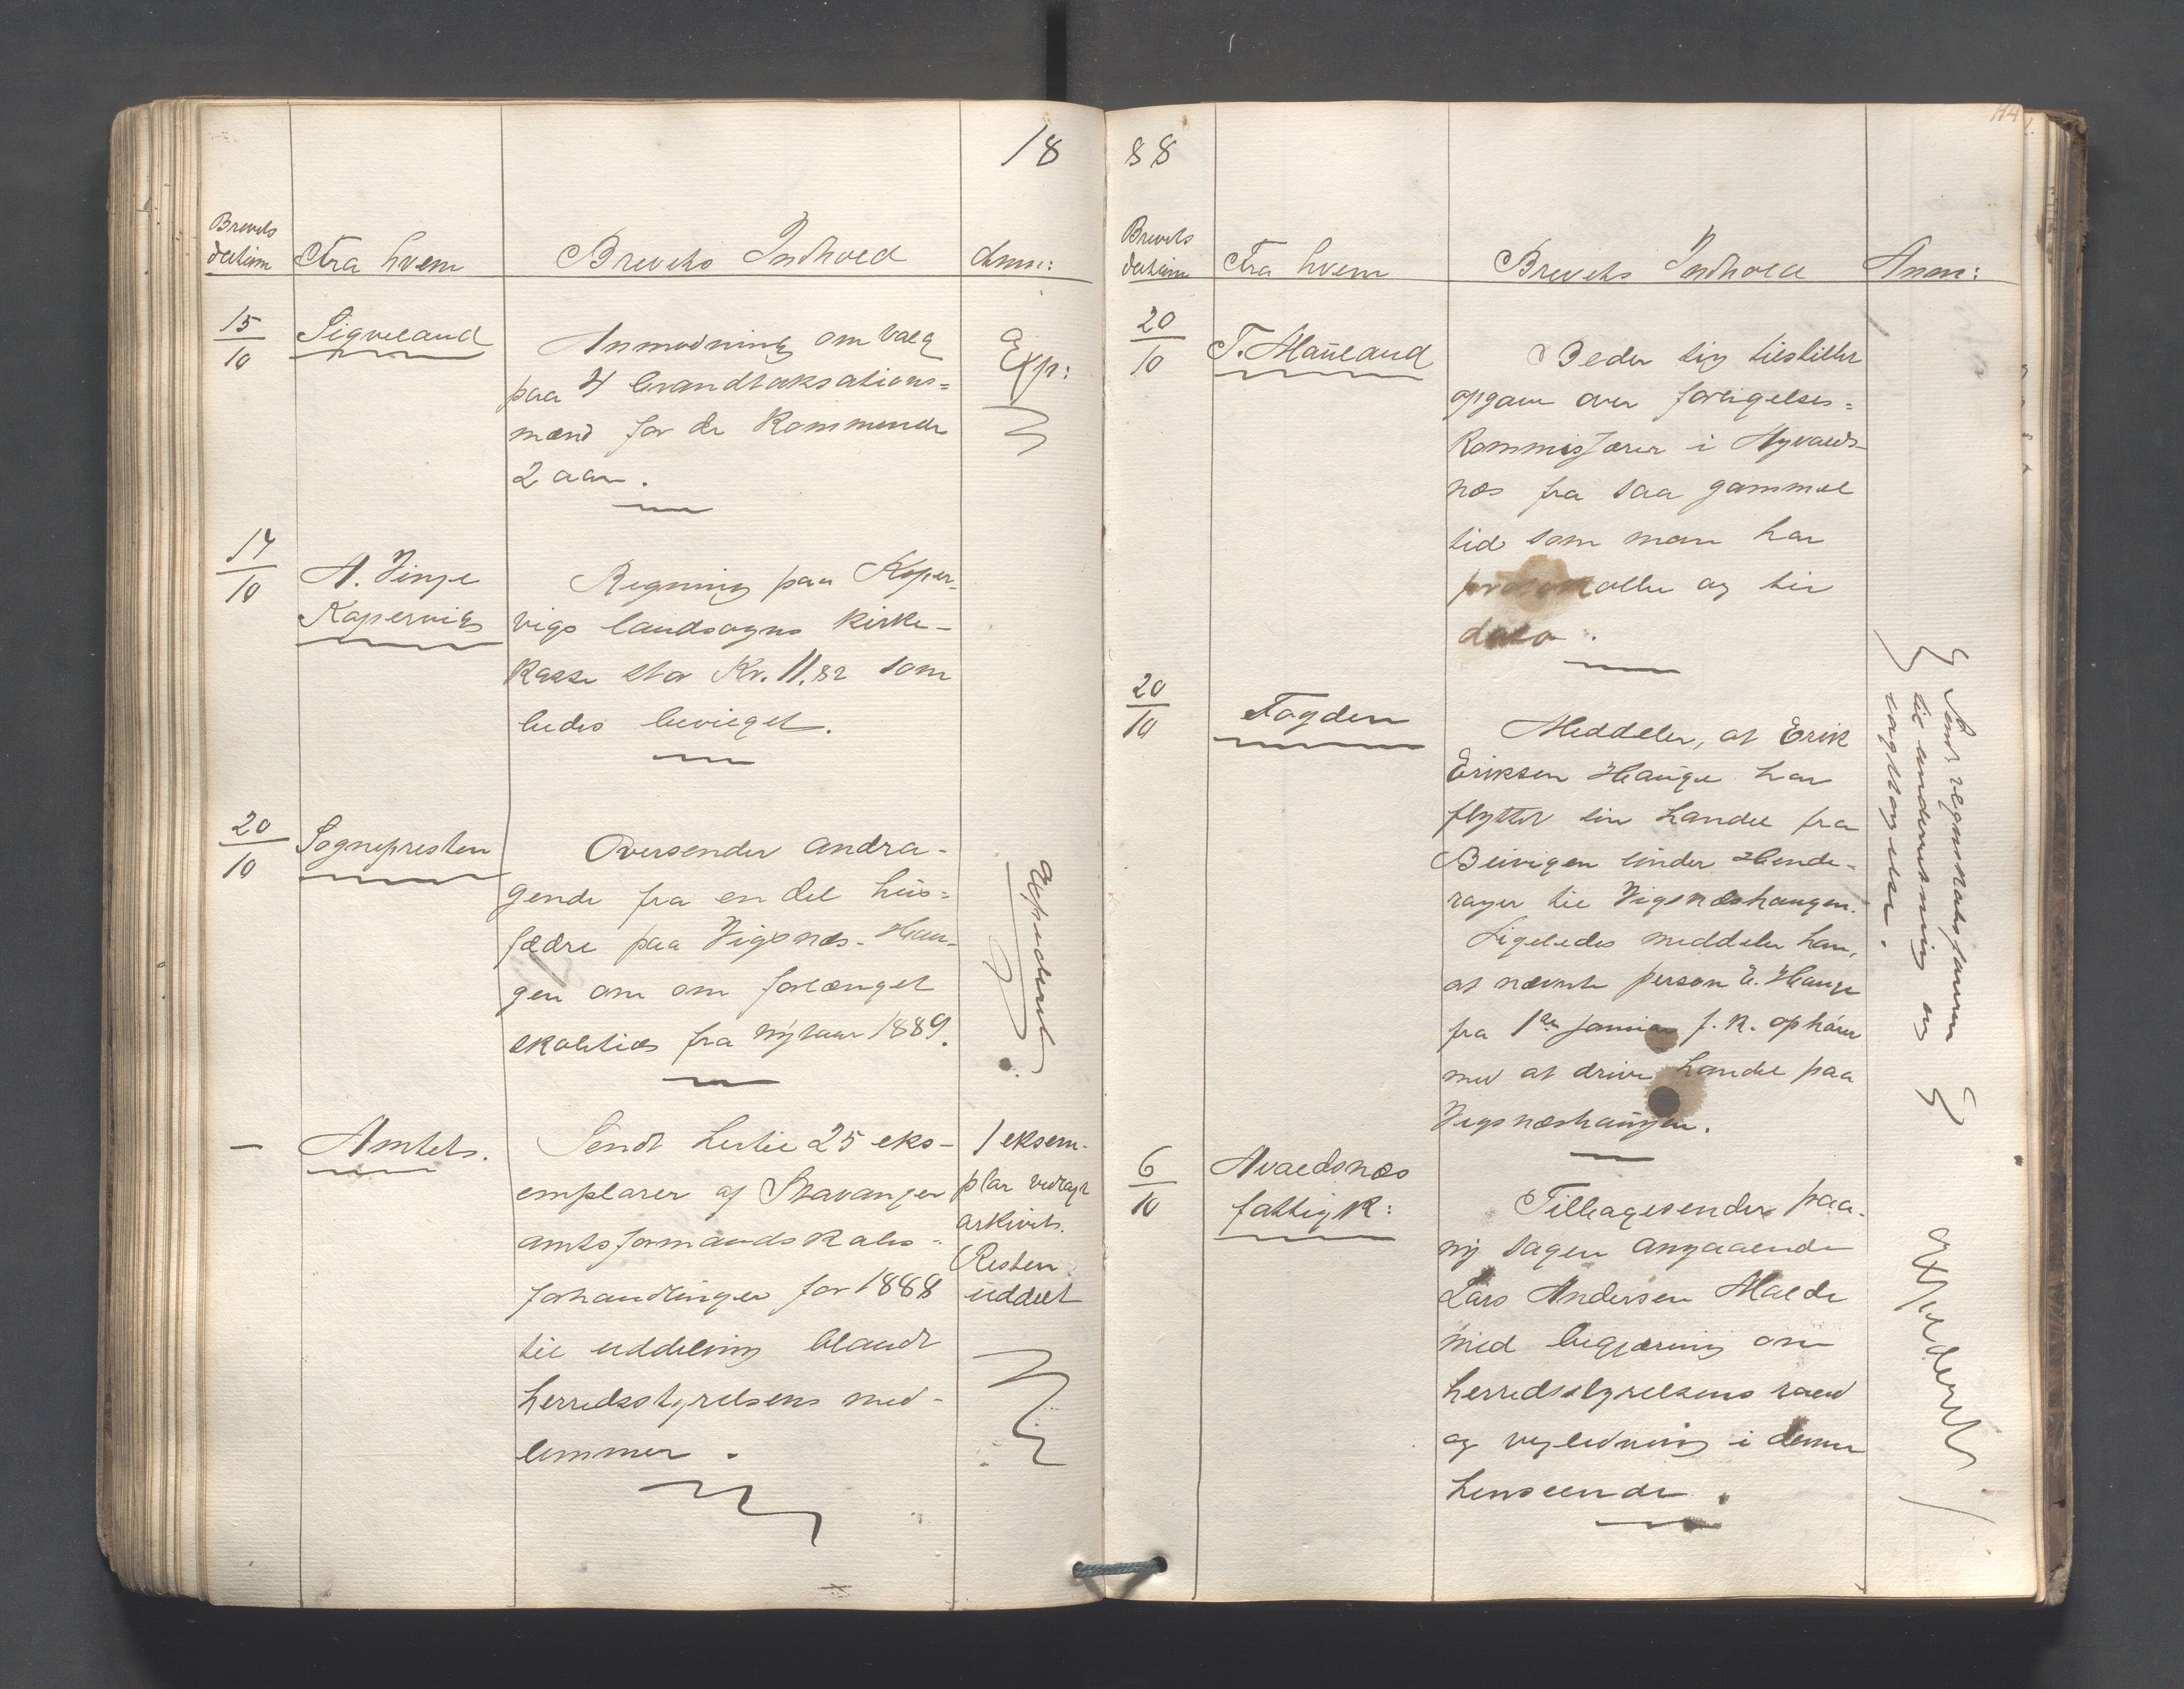 18
Brevets
datum
Fra hvem
Brevets Indhold
Anm:
15/10
Sigveland
Anmodning om valg
paa 4 brandtaksations=
mænd for de kommende
2 aar.
Exp:
17/10
A. Vinje
Kopervik
Regning paa Koper-
vigs landsogns kirke-
kasse stor Kr. 11,82 som
bedes bevilget.
20/10
Sognepresten
Oversender andra-
gende fra en del hus=
fædre paa Vigsnes-Hau-
gen om om forlænget
skoletid fra nytaar 1889.
Expederet.
—
Amtet.
Sendt hertil 25 eks-
emplarer af Stavanger
amtsformandskabs-
forhandlinger for 1888
til uddeling blandt
herredsstyrelsens med-
lemmer.
1 eksem-
plar vedlagt
arkivet.
Resten
uddelt
88
114
Brevets
datum
Fra hvem
Brevets Indhold
Anm:
20/10
T. Mauland
Beder sig tilstillet
opgave over forligelses=
kommissærer i Ayvalds-
næs fra saa gammel
tid som man har
protokoller og til
dato.
20/10
Fogden
Meddeler, at Erik
Eriksen Hauge har
flyttet sin handel fra
under Hende-
til Vigsnæshaugen.
Ligeledes meddeler han,
at nævnte person E. Hauge
fra 1ste januar f. k. ophører
med at drive handel paa
Vigsnæshaugen.
Sendt regnskabsføreren
til underretning og
iagttagelse.
6/10
Avaldsnæs
fattigk:
Tilbagesender paa-
ny sagen angaaende
Lars Andersen Malde
med begjæring om
herredsstyrelsens raad
og veiledning i denne
henseende.
expederet.